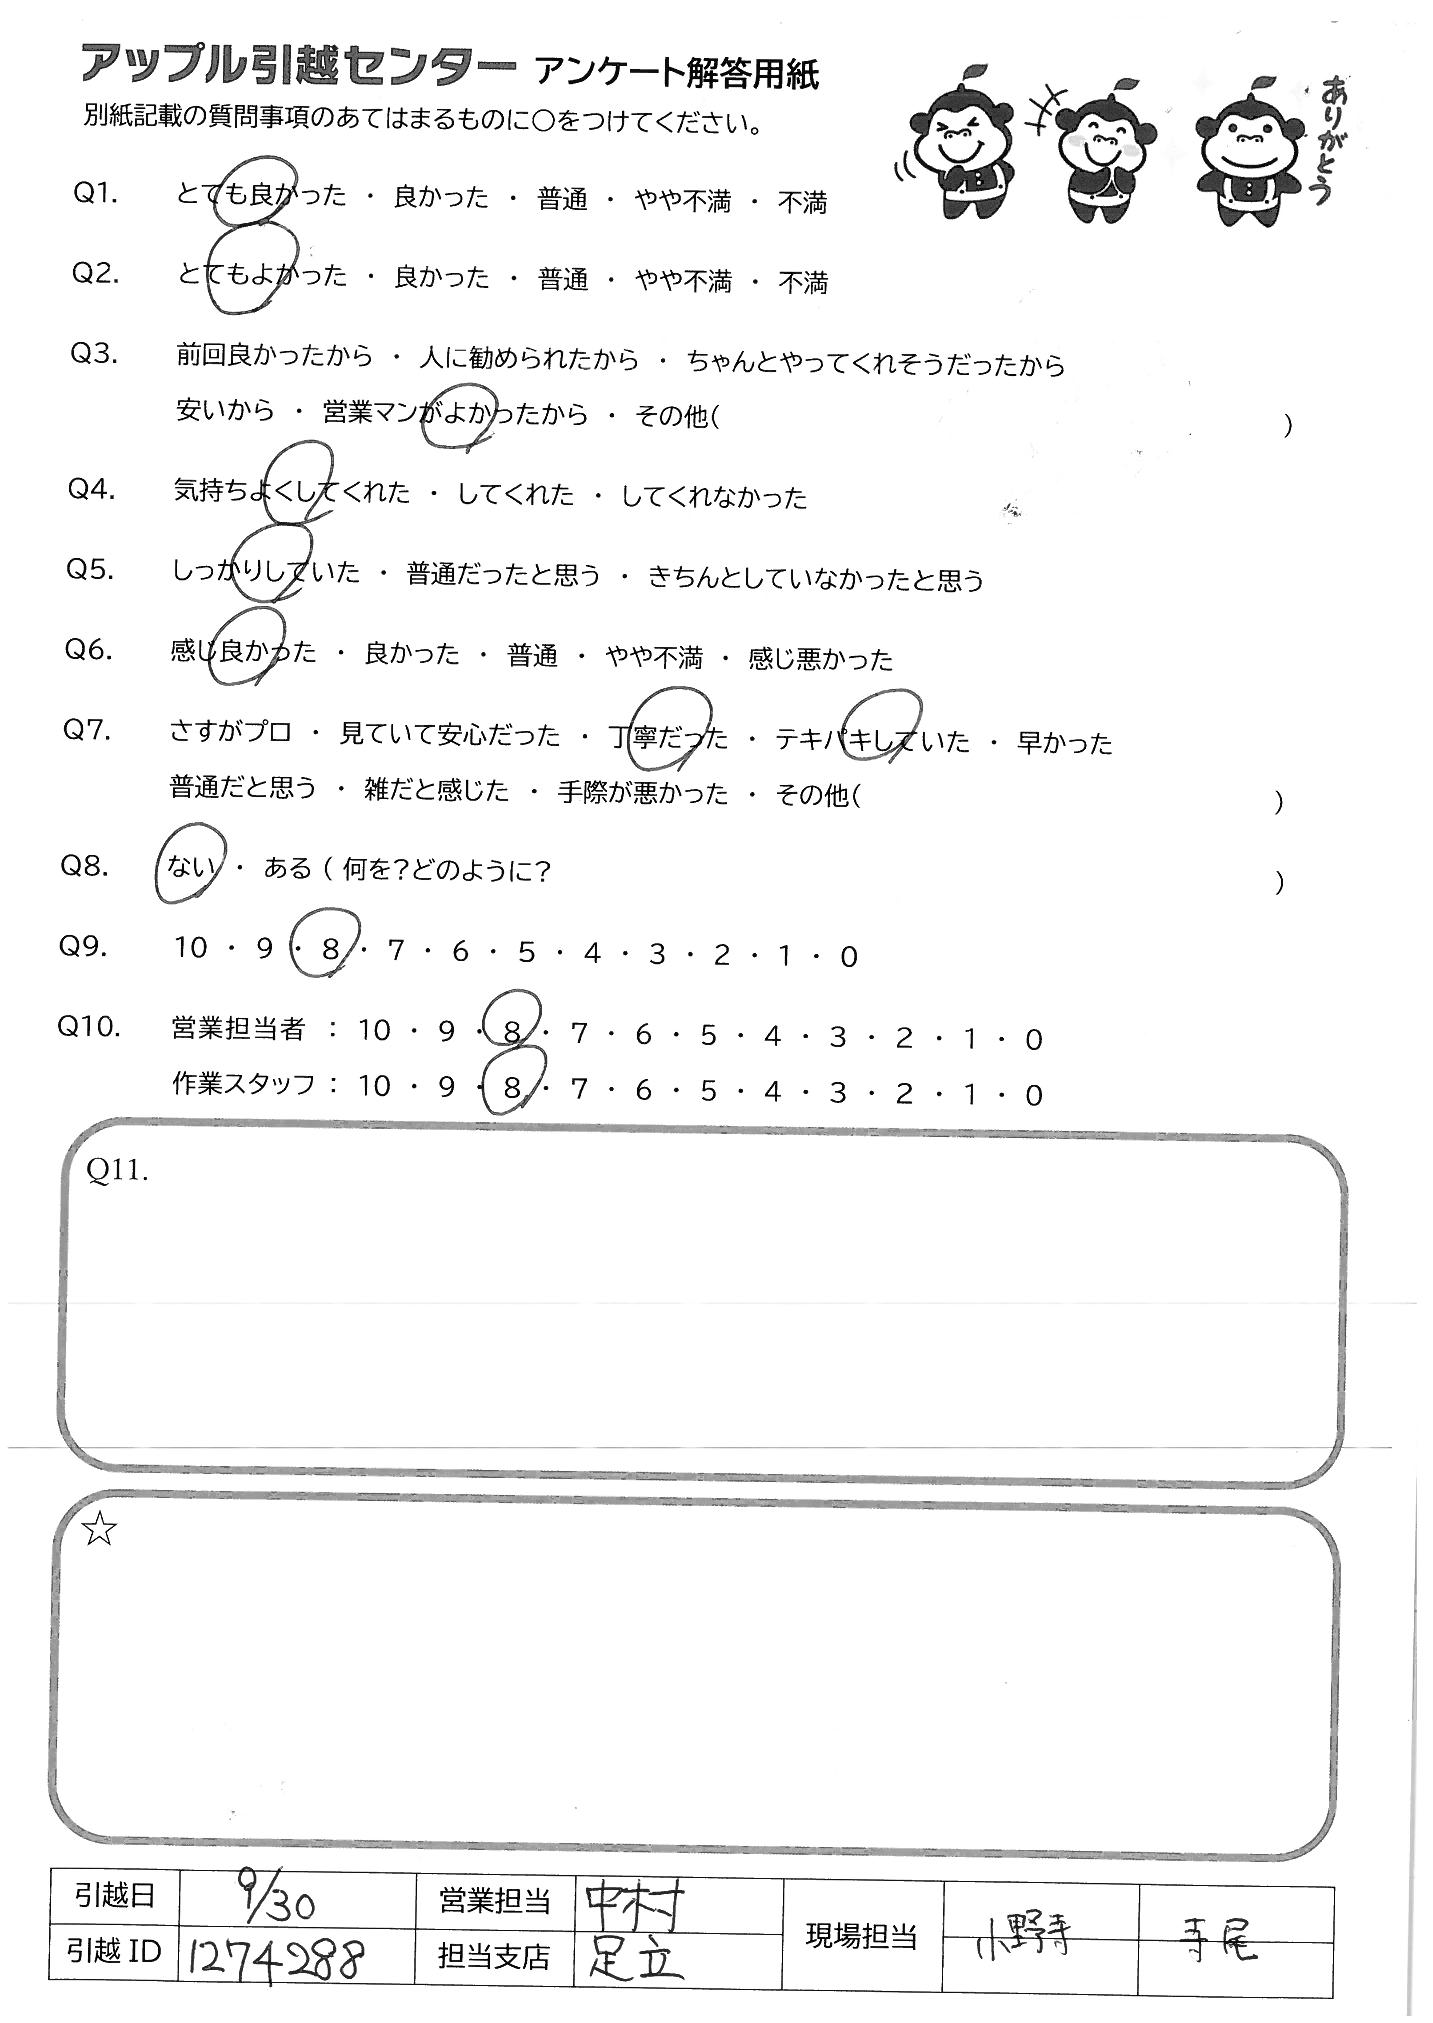 アップル引越センター アンケート解答用紙
別紙記載の質問事項のあてはまるものに〇をつけてください。
ありがとう
Q1. とても良かった ・ 良かった ・ 普通 ・ やや不満 ・ 不満
Q2. とてもよかった ・ 良かった ・ 普通 ・ やや不満 ・ 不満
Q3. 前回良かったから ・ 人に勧められたから ・ ちゃんとやってくれそうだったから
安いから ・ 営業マンがよかったから ・ その他( )
Q4. 気持ちよくしてくれた ・ してくれた ・ してくれなかった
Q5. しっかりしていた ・ 普通だったと思う ・ きちんとしていなかったと思う
Q6. 感じ良かった ・ 良かった ・ 普通 ・ やや不満 ・ 感じ悪かった
Q7. さすがプロ ・ 見ていて安心だった ・ 丁寧だった ・ テキパキしていた ・ 早かった
普通だと思う ・ 雑だと感じた ・ 手際が悪かった ・ その他( )
Q8. ない ・ ある ( 何を?どのように? )
Q9. 10 ・ 9 ・ 8 ・ 7 ・ 6 ・ 5 ・ 4 ・ 3 ・ 2 ・ 1 ・ 0
Q10. 営業担当者 : 10 ・ 9 ・ 8 ・ 7 ・ 6 ・ 5 ・ 4 ・ 3 ・ 2 ・ 1 ・ 0
作業スタッフ : 10 ・ 9 ・ 8 ・ 7 ・ 6 ・ 5 ・ 4 ・ 3 ・ 2 ・ 1 ・ 0
Q11.
☆
引越日 9/30 営業担当 中村 現場担当 小野寺 寺尾
引越 ID 1274288 担当支店 足立